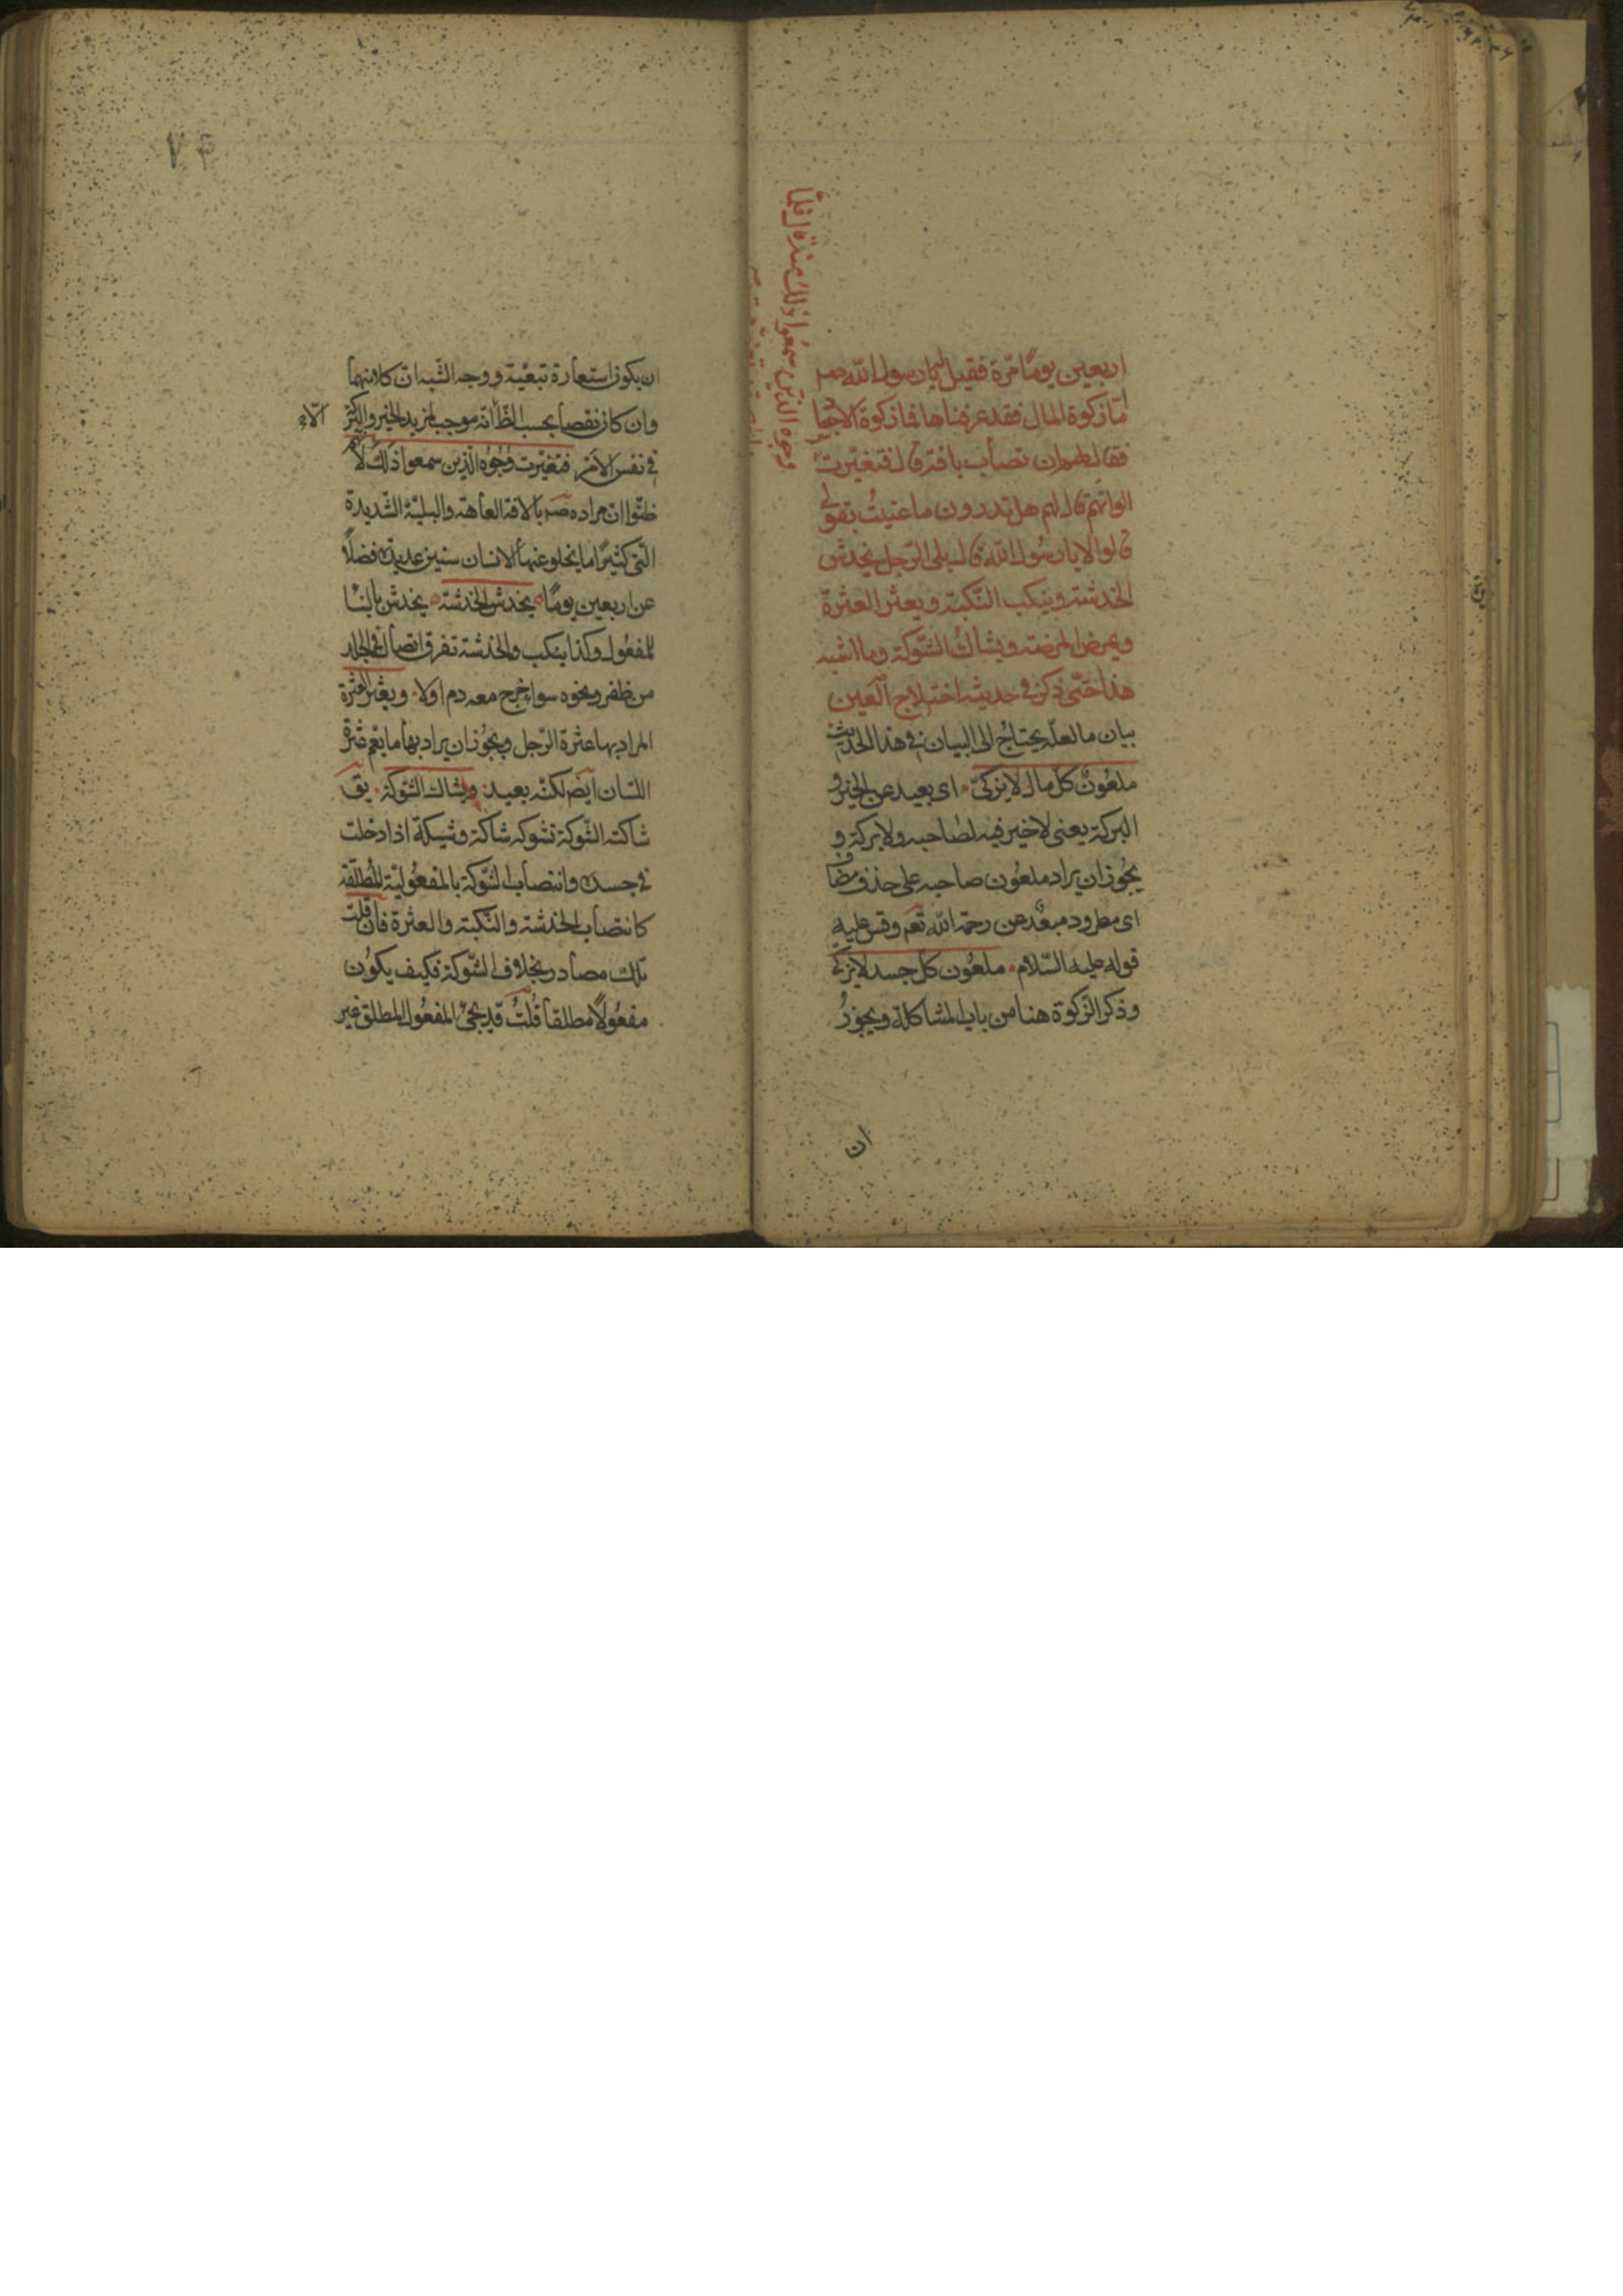 اربعين يومًا مرّة فقيل يا رسول الله صم
امّا زكوة المال فقد عرفناها فما زكوة الاجساد
فقال لهم ان تصاب بافة قال فتغيّرت
وجوه الذين سمعوا ذلك منه قال فلمّا
قال لهم هل تدرون ما عنيت بقولى
قالوا لا يا رسول الله قال بلى الرّجل يخدش
الخدشة وينكب النّكبة ويعثر العثرة
ويمرض المرضة ويشاك الشّوكة وما اشبه
هذا حتّى ذكر فى حديثه اختلاج العين
بيان ما لعلّه يحتاج الى البيان فى هذا الحديث
ملعون كلّ مال لا يزكّى اى بعيد عن الخير و
البركة يعنى لا خير فيه لصاحبه ولا بركة و
يجوز ان يراد ملعون صاحبه على حذف مضاف
اى مطرود مبعّد عن رحمة الله تعم وقس عليه
قوله عليه السّلام ملعون كلّ جسد لا يزكّى
وذكر الزكوة هنا من باب المشاكلة ويجوز
ان
٧۴
ان يكون استعارة تبعيّة ووجه الشّبه انّ كلا منهما
وان كان نقصا بحسب الظّا الّا انّه موجب لمزيد الخير والبركة
فى نفس الامر فتغيّرت وجوه الّذين سمعوا ذلك لانّهم
ظنّوا انّ مراده صم بالافة العاهة والبليّة الشّديدة
الّتى كثيرًا ما يخلو عنها الانسان سنين عديدة فضلًا
عن اربعين يومًا يخدش الخدشة يخدش بالبنا
للمفعول وكذا ينكب والخدشة تفرق اتصال فى الجلد
من ظفر ونحوه سواء خرج معه دم اولا ويعثر العثرة
المراد بها عثرة الرّجل ويجوز ان يراد بها ما يعمّ عثرة
اللّسان ايضً لكنّه بعيد ويشاك الشّوكة يق
شاكته الشّوكة تشوكه شاكة وشيكة اذا دخلت
فى جسده وانتصاب الشّوكة بالمفعوليّة المطلقة
كانتصاب الخدشة والنّكبة والعثرة فان قلت
تلك مصادر بخلاف الشّوكة فكيف يكون
مفعولًا مطلقا قلتُ قد يجئ المفعول المطلق غير